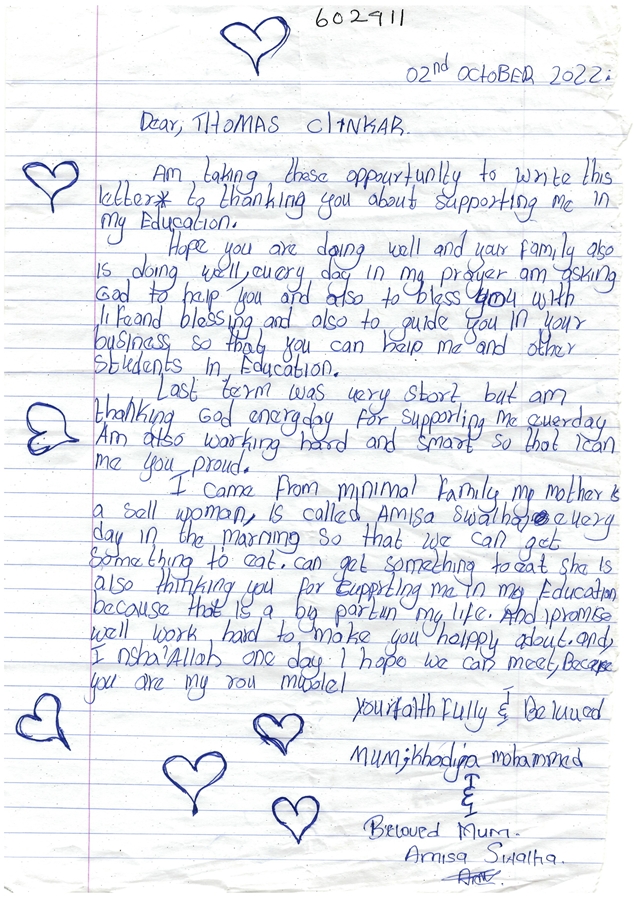 602911
02nd OCTOBER 2022.
Dear, THOMAS CLINKAR.
Am taking these oppourtunity to write this
letter* to thanking you about supporting me in
my Education.
Hope you are doing well and your family also
is doing well, every day in my prayer am asking
God to help you and also to bless you with
lifeand blessing and also to guide you in your
business so that you can help me and other
students in Education.
Last term was very start but am
thanking God eneryday for supporting me everday
Am also working hard and smart so that ican
me you proud.
I came from minimal family my mother is
a sell woman, is called Amisa Swalha every
day in the marning so that we can get
something to eat. can get something to eat she is
also thinking you for supprting me in my Education
because that is a big partin my life. And ipromise
well work hard to make you happy about. and,
Insha'Allah one day I hope we can meet, Because
you are my rou model
yourfaithfully & Beloved
Mum; Khadija mohammed
&
Beloved Mum.
Amisa Swalha.